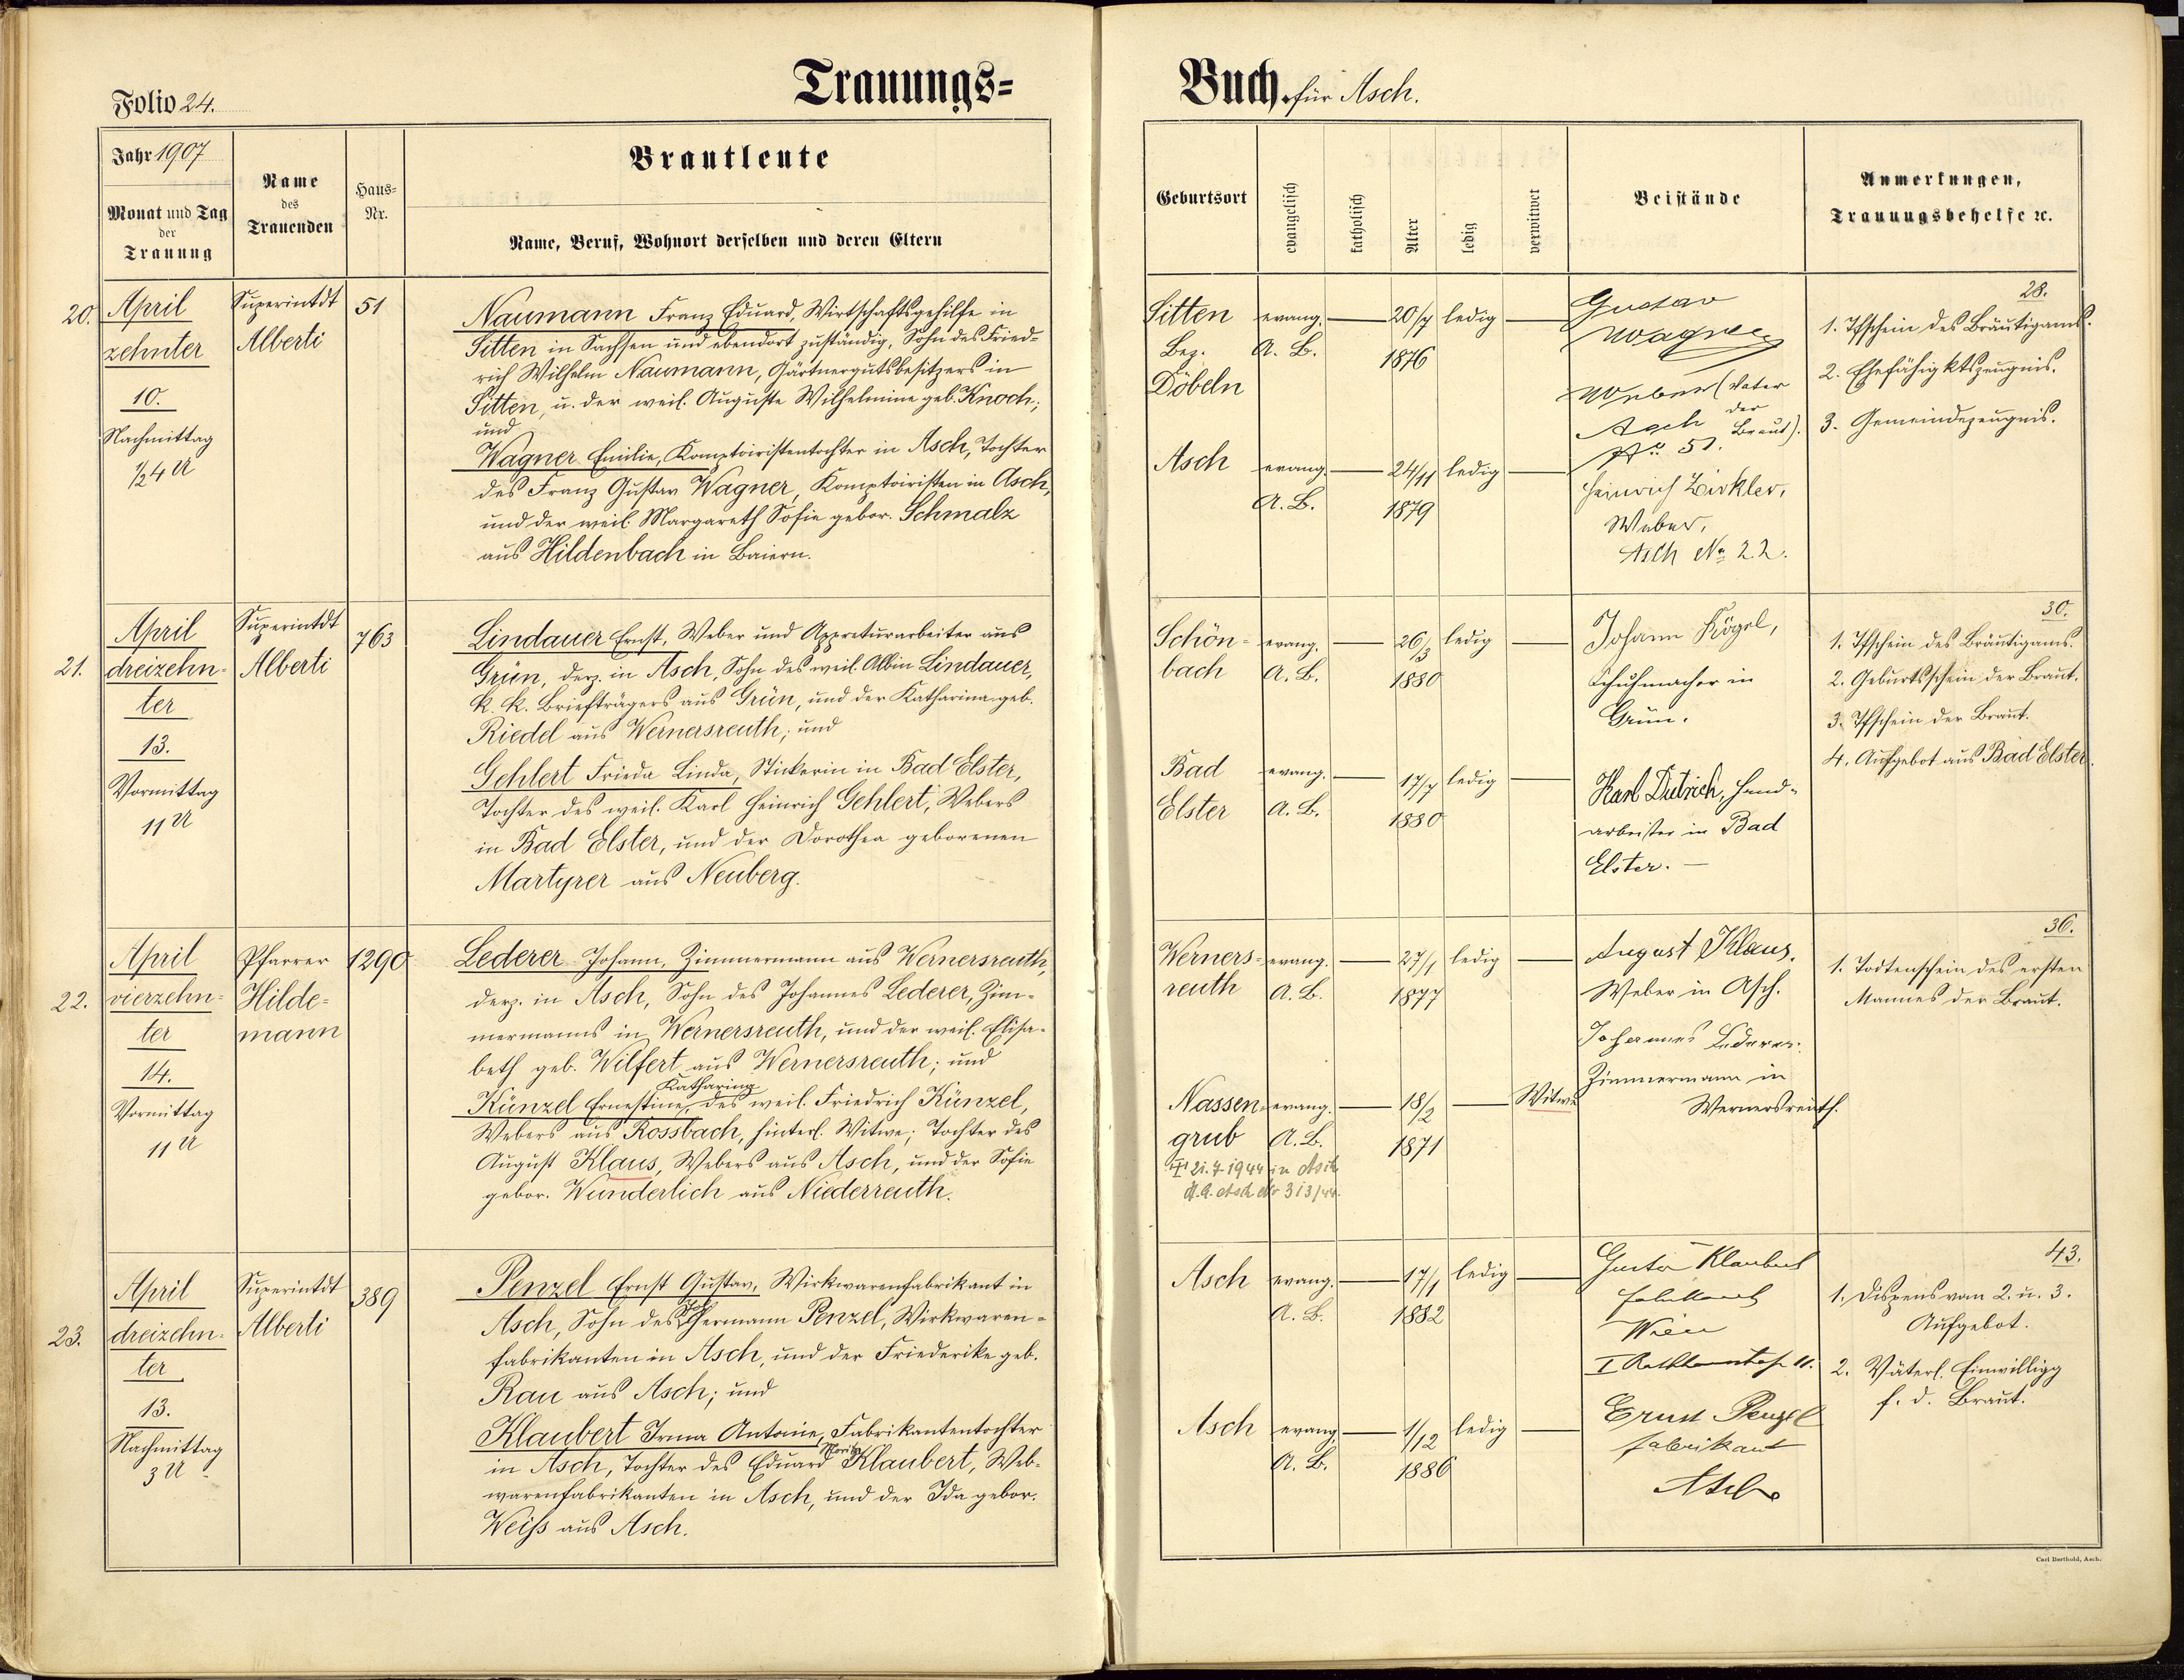 Folio 24.
Trauungs=
Jahr 1907
Monat und Tag
der
Trauung
Name
des
Trauenden
Haus=
Nr.
Brautleute
Name, Beruf, Wohnort derselben und deren Eltern
20.
April
zehnter
10.
Nachmittag
½4 U
Superintdt
Alberti
51
Naumann Franz Eduard, Wirtschaftsgehilfe in
Sitten in Sachsen und ebendort zuständig, Sohn des Fried=
rich Wilhelm Naumann, Gärtnergutsbesitzers in
Sitten, u. der weil. Auguste Wilhelmine geb. Knoch;
und
Wagner Emilie, Komptoiristentochter in Asch, Tochter
des Franz Gustav Wagner, Komptoiristen in Asch,
und der weil. Margareth Sofie gebor. Schmalz
aus Hildenbach in Baiern.
21.
April
dreizehn=
ter
13.
Vormittag
11 U
Superintdt
Alberti
763
Lindauer Ernst, Weber und Appreturarbeiter aus
Grün, derz. in Asch, Sohn des weil. Albin Lindauer,
k. k. Briefträgers aus Grün, und der Katharina geb.
Riedel aus Wernersreuth; und
Gehlert Frieda Linda, Stickerin in Bad Elster,
Tochter des weil. Karl Heinrich Gehlert, Webers
in Bad Elster, und der Dorothea geborenen
Martyrer aus Neuberg.
22.
April
vierzehn=
ter
14.
Vormittag
11 U
Pfarrer
Hilde=
mann
1290
Lederer Johann, Zimmermann aus Wernersreuth,
derz. in Asch, Sohn des Johannes Lederer, Zim=
mermanns in Wernersreuth, und der weil. Elisa=
beth geb. Wilfert aus Wernersreuth; und
Katharina
Künzel Ernestine, des weil. Friedrich Künzel,
Webers aus Rossbach, hinterl. Witwe; Tochter des
August Klaus, Webers aus Asch, und der Sofie
gebor. Wunderlich aus Niederreuth.
23.
April
dreizehn=
ter
13.
Nachmittag
3 U
Superintdt
Alberti
389
Penzel Ernst Gustav, Wirkwarenfabrikant in
Asch, Sohn des Hermann Penzel, Wirkwaren=
fabrikanten in Asch, und der Friederike geb.
Rau aus Asch; und
Klaubert Irma Antonie, Fabrikantentochter
Moritz
in Asch, Tochter des Eduard Klaubert, Web=
warenfabrikanten in Asch, und der Ida gebor.
Weiss aus Asch.
Buch für Asch.
Geburtsort
evangelisch
katholisch
Alter
ledig
verwitwet
Beistände
Anmerkungen,
Trauungsbehelfe ꝛc.
Sitten
Bez.
Döbeln
evang.
A. B.
20/7
1876
ledig
Asch
evang.
A. B.
24/11
1879
ledig
Gustav
Wagner
Weber (Vater
der
Asch Braut).
No 51.
Heinrich Zirkler,
Weber,
Asch No 22.
28.
1. Tfschein des Bräutigams.
2. Ehefähigktszeugnis.
3. Gemeindezeugnis.
Schön=
bach
evang.
A. B.
26/3
1880
ledig
Bad
Elster
evang.
A. B.
17/7
1880
ledig
Johann Kögel,
Schuhmacher in
Grün.
Karl Dietrich, Hand=
arbeiter in Bad
Elster.
30.
1. Tfschein des Bräutigams.
2. Geburtsschein der Braut.
3. Tfschein der Braut.
4. Aufgebot aus Bad Elster.
Werners=
reuth
evang.
A. B.
27/1
1877
ledig
Nassen=
grub
evang.
A. B.
18/2
1871
Witwe
21.7.1944 in Asch
Asch Nr 313/44.
August Klaus,
Weber in Asch.
Johannes Lederer.
Zimmermann in
Wernersreuth.
36.
1. Todtenschein des ersten
Mannes der Braut.
Asch
evang.
A. B.
17/1
1882
ledig
Asch
evang.
A. B.
1/12
1886
ledig
Gustav Klaubert
Fabrikant
Wien
Ernst Penzel
Fabrikant
Asch
43.
1. Dispens vom 2. u. 3.
Aufgebot.
2. Väterl. Einwilligg
f. d. Braut.
Carl Berthold, Asch.